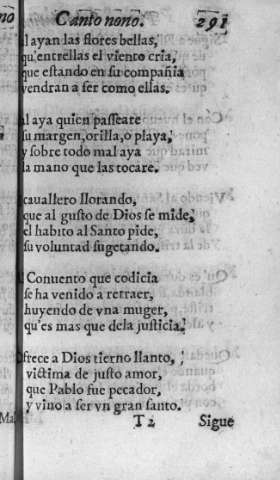 Canto nono. 291
al ayan las flores bellas,
qu'entrellas el viento cria,
que estando en su compañia
vendran a ser como ellas.
al aya quien passeare
su margen, orilla, o playa,
y sobre todo mal aya
la mano que las tocare.
cauallero llorando,
que al gusto de Dios se mide,
el habito al Santo pide,
su voluntad sugetando.
Conuento que codicia
se ha venido a retraer,
huyendo de vna muger,
qu'es mas que dela justicia.
frece a Dios tierno llanto,
victima de justo amor,
que Pablo fue pecador,
y vino a ser vn gran santo.
T 2 Sigue